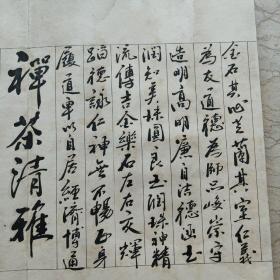 金石其心芝蘭其室仁義
為友道德為師品峻崇守
造明高明廉自法德玉
潤知珠圓良玉潤珠神精
流傳吉金樂石左右交輝
蹈德詠仁神無不暢正身
履道卓以自居經濟博通
禪茶清雅